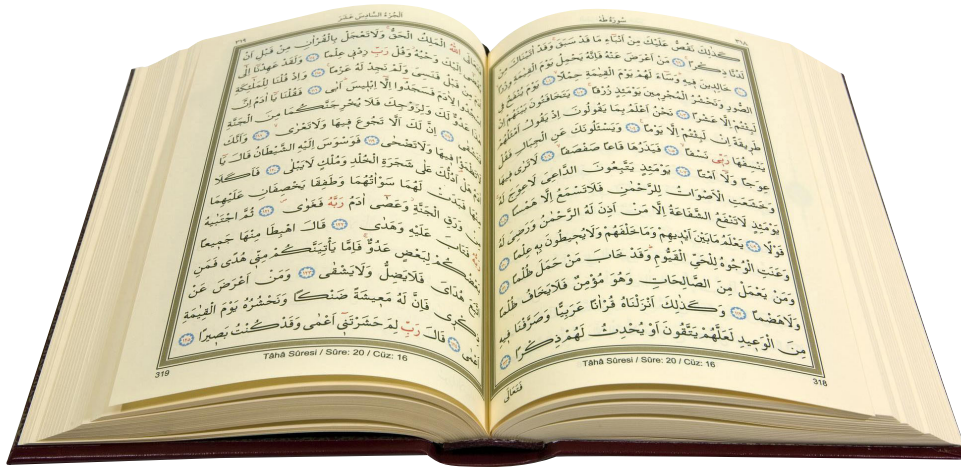 ٣١٨ سُورَةُ طٰهٰ
كَذٰلِكَ نَقُصُّ عَلَيْكَ مِنْ اَنْبَٓاءِ مَا قَدْ سَبَقَۚ وَقَدْ اٰتَيْنَاكَ مِنْ
لَدُنَّا ذِكْرًاۚ ﴿٩٩﴾ مَنْ اَعْرَضَ عَنْهُ فَاِنَّهُ يَحْمِلُ يَوْمَ الْقِيٰمَةِ وِزْرًاۙ
﴿١٠٠﴾ خَالِدٖينَ فٖيهِۜ وَسَٓاءَ لَهُمْ يَوْمَ الْقِيٰمَةِ حِمْلًاۙ ﴿١٠١﴾ يَوْمَ يُنْفَخُ فِي
الصُّورِ وَنَحْشُرُ الْمُجْرِمٖينَ يَوْمَئِذٍ زُرْقًاۚ ﴿١٠٢﴾ يَتَخَافَتُونَ بَيْنَهُمْ اِنْ
لَبِثْتُمْ اِلَّا عَشْرًا ﴿١٠٣﴾ نَحْنُ اَعْلَمُ بِمَا يَقُولُونَ اِذْ يَقُولُ اَمْثَلُهُمْ
طَرٖيقَةً اِنْ لَبِثْتُمْ اِلَّا يَوْمًا۟ ﴿١٠٤﴾ وَيَسْـَٔلُونَكَ عَنِ الْجِبَالِ فَقُلْ
يَنْسِفُهَا رَبّٖي نَسْفًاۙ ﴿١٠٥﴾ فَيَذَرُهَا قَاعًا صَفْصَفًاۙ ﴿١٠٦﴾ لَا تَرٰى فٖيهَا
عِوَجًا وَلَٓا اَمْتًاۜ ﴿١٠٧﴾ يَوْمَئِذٍ يَتَّبِعُونَ الدَّاعِيَ لَا عِوَجَ لَهُۚ
وَخَشَعَتِ الْاَصْوَاتُ لِلرَّحْمٰنِ فَلَا تَسْمَعُ اِلَّا هَمْسًا ﴿١٠٨﴾
يَوْمَئِذٍ لَا تَنْفَعُ الشَّفَاعَةُ اِلَّا مَنْ اَذِنَ لَهُ الرَّحْمٰنُ وَرَضِيَ لَهُ
قَوْلًا ﴿١٠٩﴾ يَعْلَمُ مَا بَيْنَ اَيْدٖيهِمْ وَمَا خَلْفَهُمْ وَلَا يُحٖيطُونَ بِهٖ عِلْمًا ﴿١١٠﴾
وَعَنَتِ الْوُجُوهُ لِلْحَيِّ الْقَيُّومِۜ وَقَدْ خَابَ مَنْ حَمَلَ ظُلْمًا ﴿١١١﴾
وَمَنْ يَعْمَلْ مِنَ الصَّالِحَاتِ وَهُوَ مُؤْمِنٌ فَلَا يَخَافُ ظُلْمًا
وَلَا هَضْمًا ﴿١١٢﴾ وَكَذٰلِكَ اَنْزَلْنَاهُ قُرْاٰنًا عَرَبِيًّا وَصَرَّفْنَا فٖيهِ
مِنَ الْوَعٖيدِ لَعَلَّهُمْ يَتَّقُونَ اَوْ يُحْدِثُ لَهُمْ ذِكْرًا ﴿١١٣﴾
Tâhâ Sûresi / Sûre: 20 / Cüz: 16
318
فَتَعَالَى
اَلْجُزْءُ السَّادِسَ عَشَرَ ٣١٩
اللّٰهُ الْمَلِكُ الْحَقُّۚ وَلَا تَعْجَلْ بِالْقُرْاٰنِ مِنْ قَبْلِ اَنْ
اِلَيْكَ وَحْيُهُۘ وَقُلْ رَبِّ زِدْنٖي عِلْمًا ﴿١١٤﴾ وَلَقَدْ عَهِدْنَٓا اِلٰٓى
قَبْلُ فَنَسِيَ وَلَمْ نَجِدْ لَهُ عَزْمًا۟ ﴿١١٥﴾ وَاِذْ قُلْنَا لِلْمَلٰٓئِكَةِ
لِاٰدَمَ فَسَجَدُٓوا اِلَّٓا اِبْلٖيسَۜ اَبٰى ﴿١١٦﴾ فَقُلْنَا يَٓا اٰدَمُ اِنَّ
عَدُوٌّ لَكَ وَلِزَوْجِكَ فَلَا يُخْرِجَنَّكُمَا مِنَ الْجَنَّةِ
﴿١١٧﴾ اِنَّ لَكَ اَلَّا تَجُوعَ فٖيهَا وَلَا تَعْرٰىۙ ﴿١١٨﴾ وَاَنَّكَ
فٖيهَا وَلَا تَضْحٰى ﴿١١٩﴾ فَوَسْوَسَ اِلَيْهِ الشَّيْطَانُ قَالَ يَٓا
هَلْ اَدُلُّكَ عَلٰى شَجَرَةِ الْخُلْدِ وَمُلْكٍ لَا يَبْلٰى ﴿١٢٠﴾ فَاَكَلَا
فَبَدَتْ لَهُمَا سَوْاٰتُهُمَا وَطَفِقَا يَخْصِفَانِ عَلَيْهِمَا
وَرَقِ الْجَنَّةِۘ وَعَصٰٓى اٰدَمُ رَبَّهُ فَغَوٰىۖ ﴿١٢١﴾ ثُمَّ اجْتَبٰيهُ
فَتَابَ عَلَيْهِ وَهَدٰى ﴿١٢٢﴾ قَالَ اهْبِطَا مِنْهَا جَمٖيعًا
لِبَعْضٍ عَدُوٌّۚ فَاِمَّا يَأْتِيَنَّكُمْ مِنّٖي هُدًى فَمَنِ
هُدَايَ فَلَا يَضِلُّ وَلَا يَشْقٰى ﴿١٢٣﴾ وَمَنْ اَعْرَضَ عَنْ
فَاِنَّ لَهُ مَعٖيشَةً ضَنْكًا وَنَحْشُرُهُ يَوْمَ الْقِيٰمَةِ
اَعْمٰى ﴿١٢٤﴾ قَالَ رَبِّ لِمَ حَشَرْتَنٖٓي اَعْمٰى وَقَدْ كُنْتُ بَصٖيرًا ﴿١٢٥﴾
Tâhâ Sûresi / Sûre: 20 / Cüz: 16
319